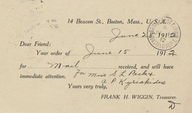 14 Beacon St., Boston, Mass., U. S. A.
June 2 191
Dear Friend:
Your order of June 15 191
for Mail received, and will have
immediate attention. For Miss S L
Yours very truly,
FRANK H. WIGGIN, Treasurer.